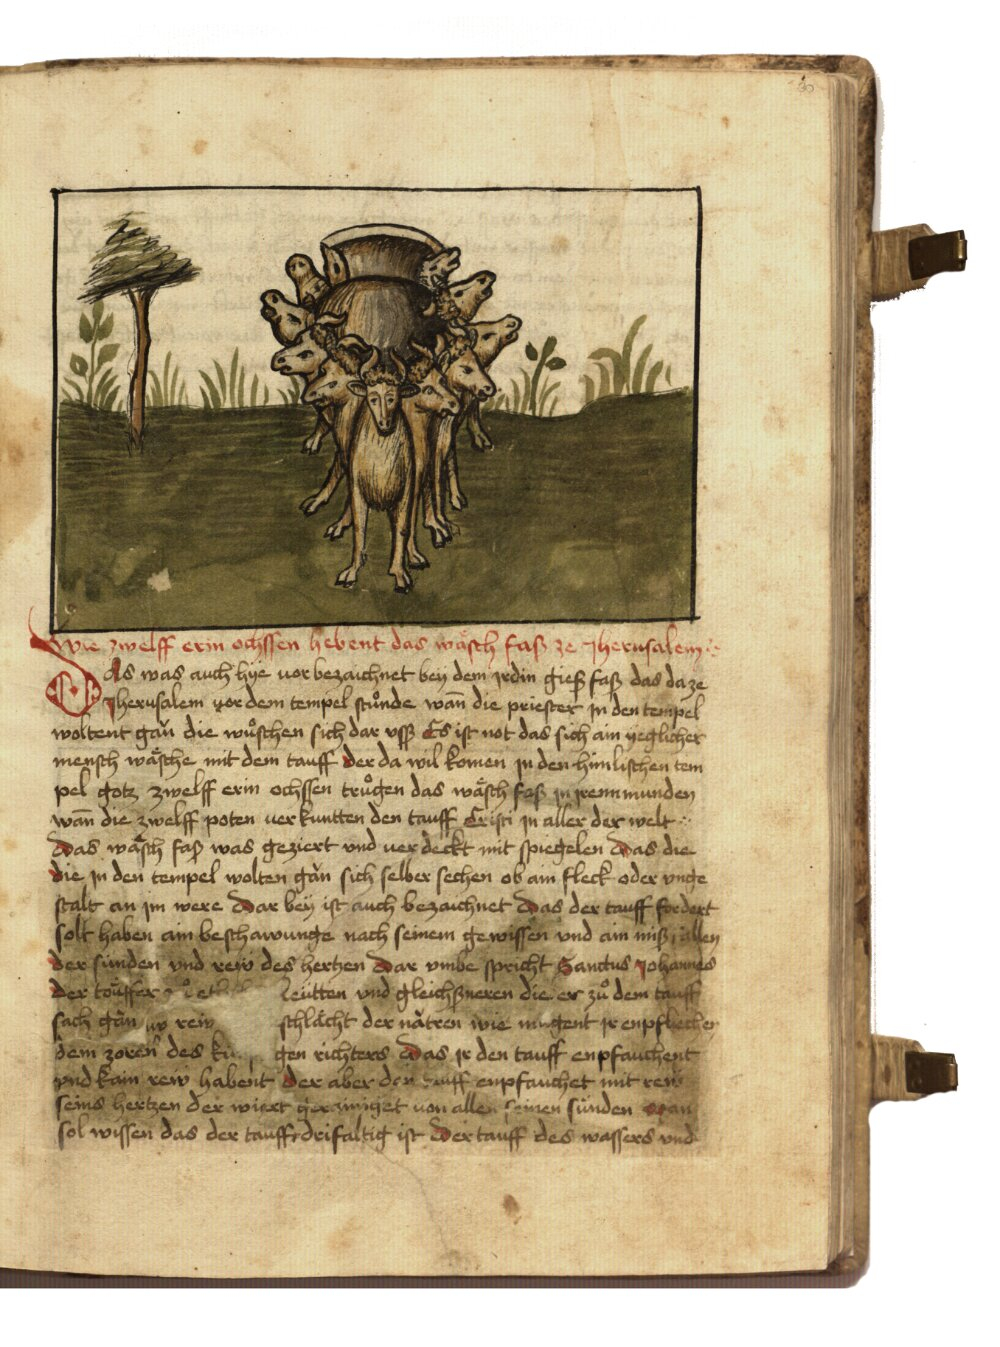 30
Wie zwelff erin ochssen hebent das wäsch faß ze Jherusalem
Das was auch hye vor bezaichnet bey dem irdin gieß faß das da ze
Jherusalem vor dem tempel stuͦnde wañ die priester in den tempel
woltent gän die wuͦschen sich dar vss Es ist not das sich ain yeglicher
mensch wäsche mit dem tauff der da wil komen in den himlischen tem
pel gotz zwelff erin ochssen truͦgen das wäsch faß in irenn munden
wañ die zwelff poten verkuntten den tauff Cristi in aller der welt
Das wäsch faß was geziert vnd verdeckt mit spiegelen Das die
die in den tempel wolten gän sich selber sechen ob ain fleck oder vnge
stalt an im were Dar bey ist auch bezaichnet Das der tauff fordert
solt haben ain beschawunge nach seinem gewissen vnd am miß allen
der sünden vnd rew des hertzen Dar vmbe spricht Sanctus Johannes
der toüffer leütten vnd gleichßneren die er zuͦ dem tauff
sach gän rew schlächt der nätren wie mugent ir enpfliechen
dem zoren des gen richters Das ir den tauff enpfauchent
vnd kain rew habent der aber den tauff enpfauchet mit rew
seins hertzen der wirt gerainiget von allen seinen sünden Man
sol wissen das der tauff drifaltig ist Der tauff des wassers vnd